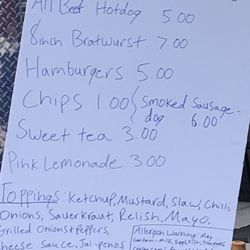 All Beef Hotdog 5.00
8inch Bratwurst 7.00
Hamburgers 5.00
Chips 1.00
Smoked Sausage-
dog 6.00
Sweet tea 3.00
Pink Lemonade 3.00
Toppings: Ketchup, Mustard, Slaw, Chili,
Onions, Sauerkraut, Relish, Mayo,
Grilled Onions & Peppers,
Cheese Sauce, Jalapenos
Allergen Warning: May
contain - Milk, Egg, Fish,